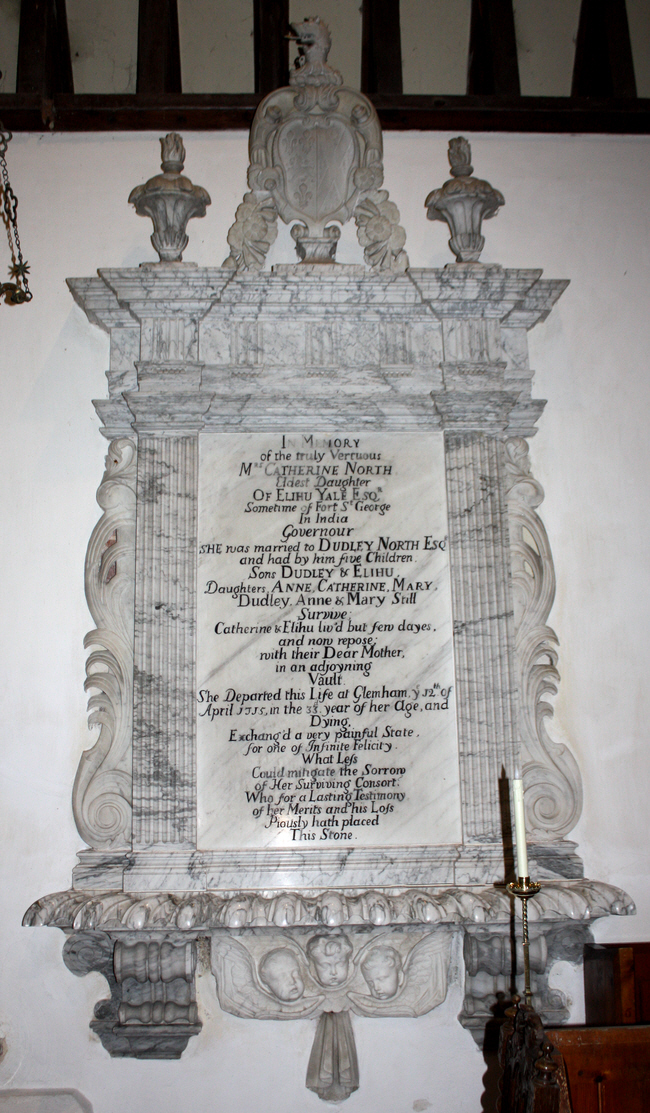 IN MEMORY
of the truly Vertuous
Mrs CATHERINE NORTH
Eldest Daughter
OF ELIHU YALE ESQR.
Sometime of Fort St George
In India
Governour
SHE was married to DUDLEY NORTH ESQ
and had by him five Children.
Sons DUDLEY & ELIHU,
Daughters, ANNE, CATHERINE, MARY,
Dudley, Anne & Mary Still
Survive;
Catherine & Elihu liv'd but few dayes,
and now repose;
with their Dear Mother,
in an adjoyning
Vault.
She Departed this Life at Glemham, ye 12th of
April 1715, in the year of her Age, and
Dying,
Exchang'd a very painful State,
for one of Infinite Felicity.
What Less
Could mitigate the Sorrow
of Her Surviving Consort,
Who for a Lasting Testimony
of her Merits and his Loss
Piously hath placed
This Stone.